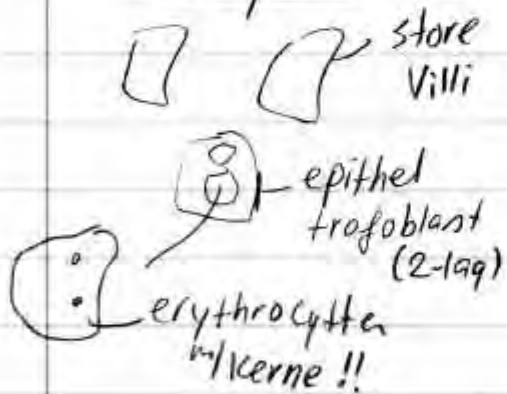 store
Villi
epithel
trofoblast
(2-lag)
erythrocytter
m/kerne !!